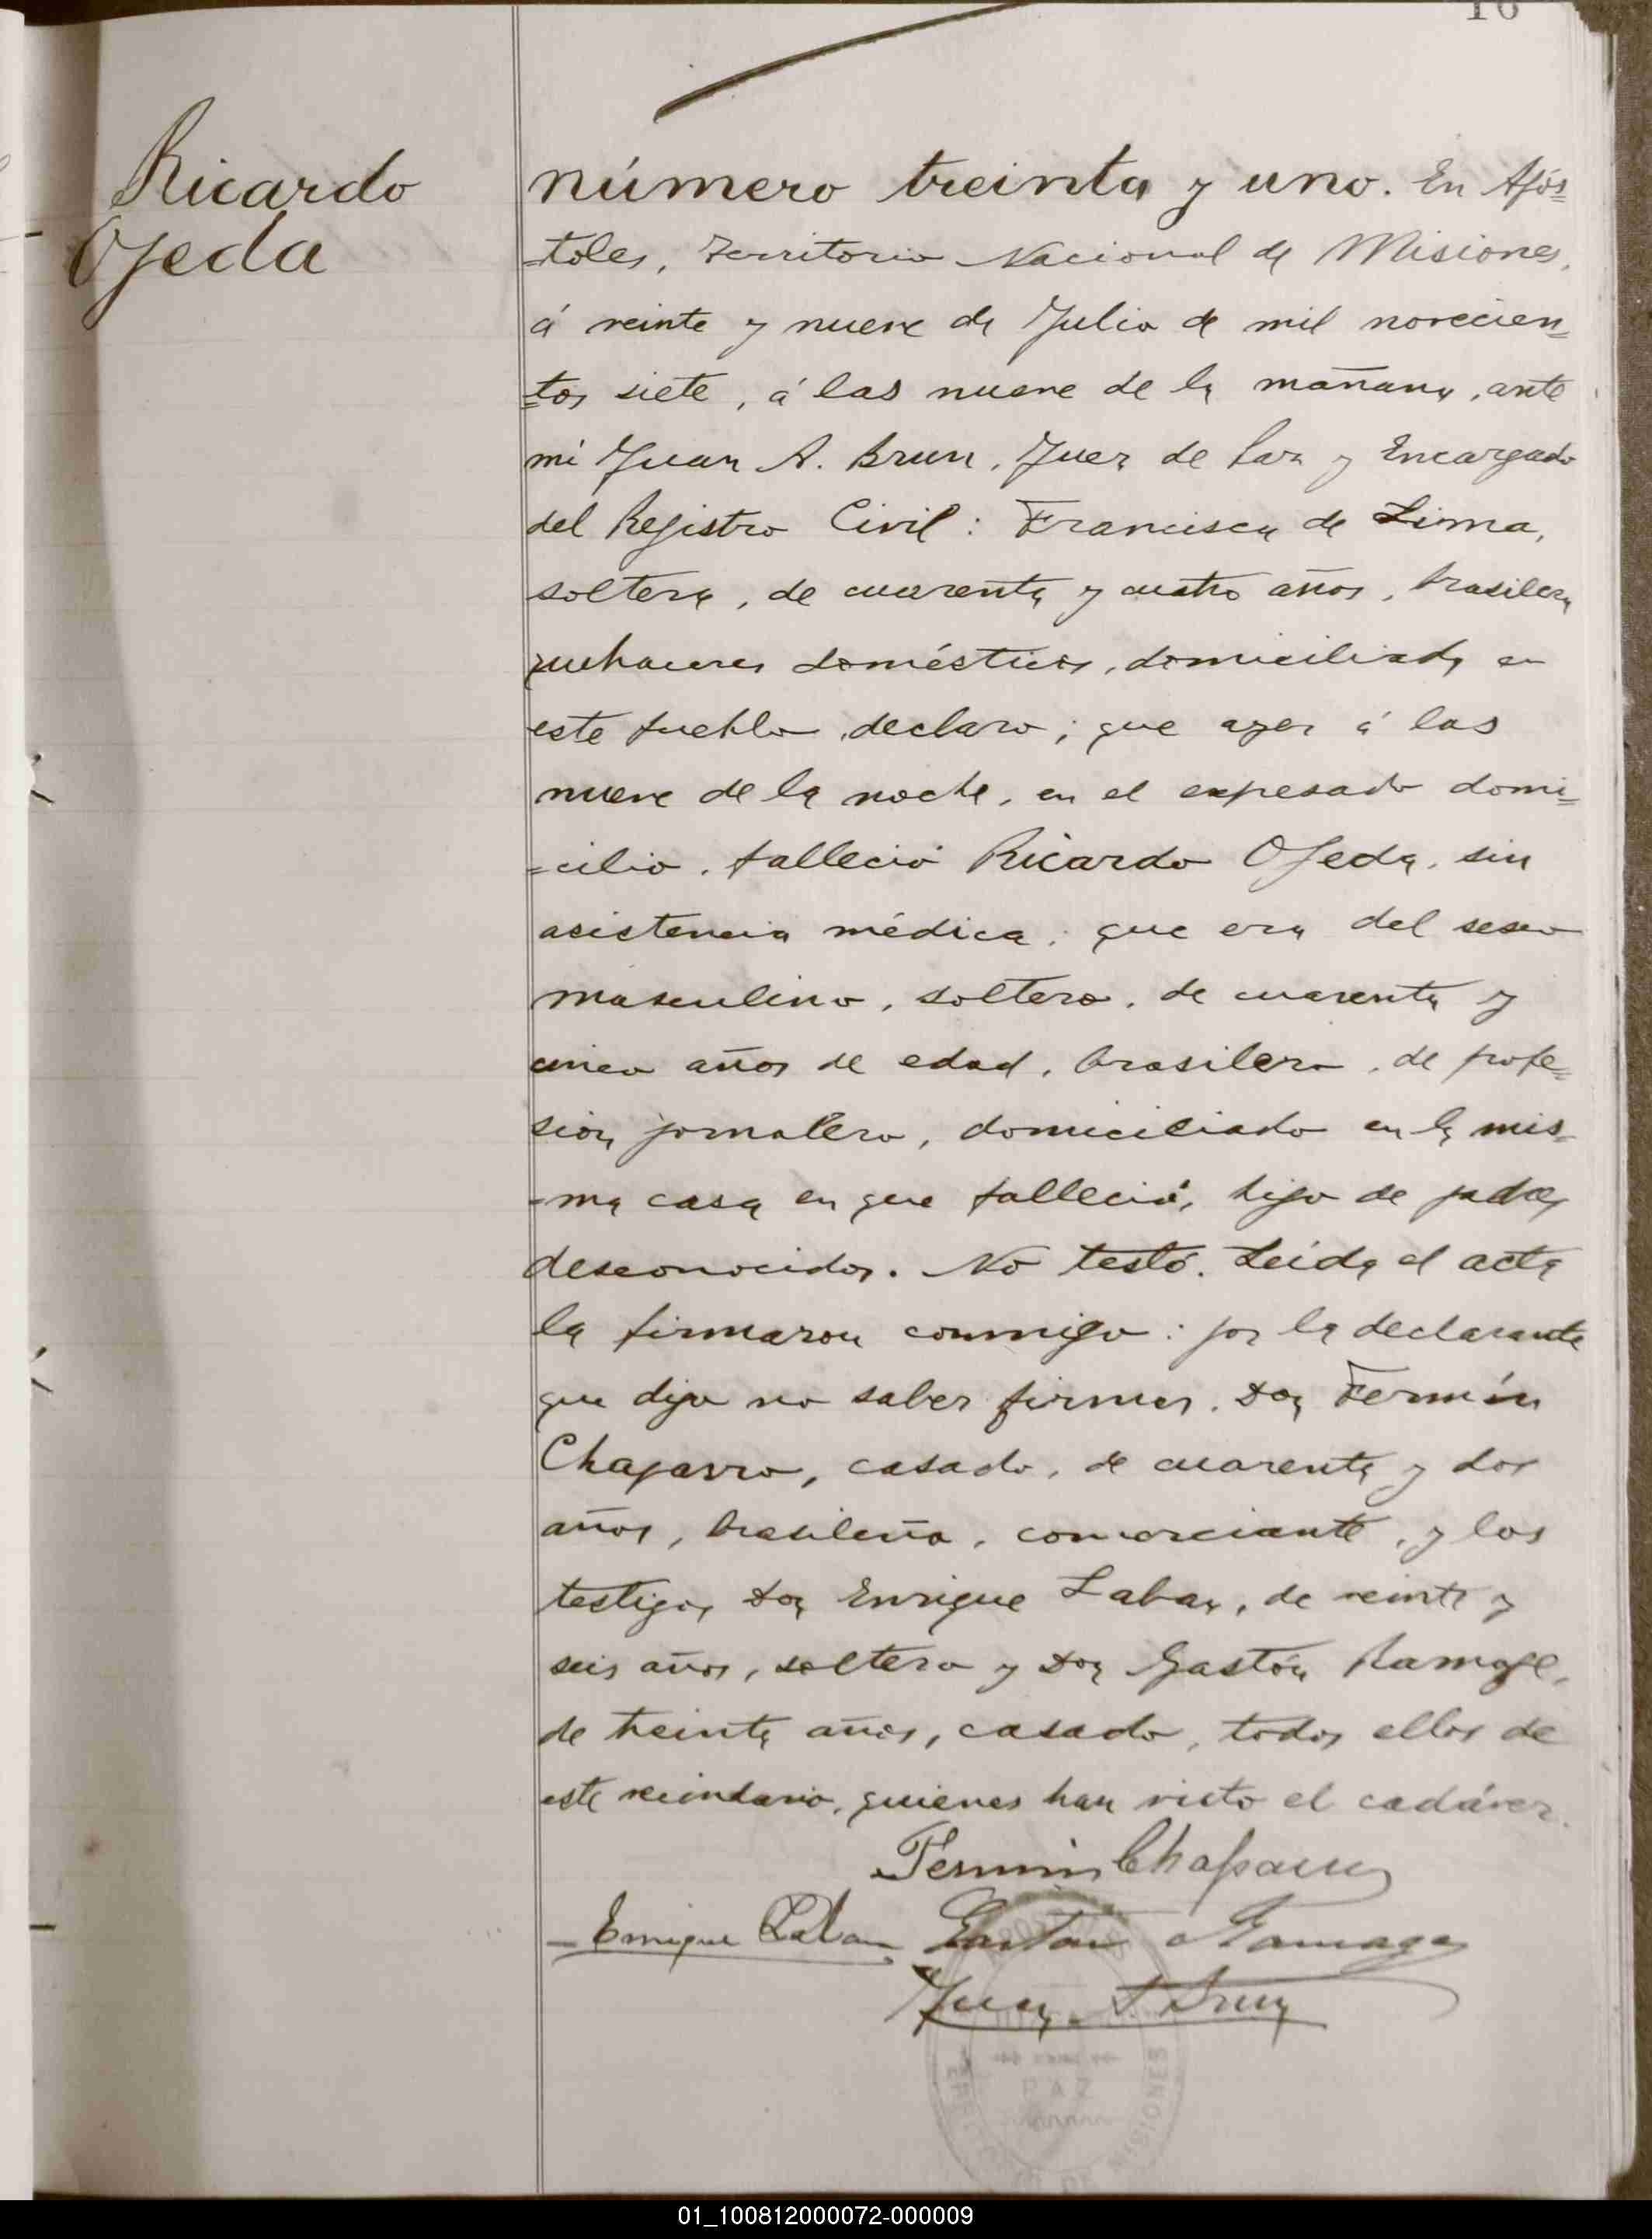 16
Ricardo
Ojeda
número treinta y uno. En Após=
=toles, Territorio Nacional de Misiones,
á veinte y nueve de Julio de mil novecien=
=tos siete, á las nueve de la mañana, ante
mi Juan A. Brun, Juez de Paz y Encargado
del Registro Civil: Francisca de Lima,
soltera, de cuarenta y cuatro años, brasilera
quehaceres domésticos, domiciliada en
este pueblo, declaro; que ayer á las
nueve de la noche, en el expesado domi=
=cilio, falleció Ricardo Ojeda, sin
asistencia médica; que era del sexo
masculino, soltero, de cuarenta y
cinco años de edad, brasilero, de profe=
sion jornalero, domiciliado en la mis=
=ma casa en que falleció, hijo de padres
desconocidos. No testó. Leida el acta
la firmaron conmigo: por la declarante
que dijo no saber firmar, Don Fermín
Chaparro, casado, de cuarenta y dos
años, brasileño, comerciante, y los
testigos Don Enrique Laban, de veinte y
seis años, soltero y Don Gastón Ramage,
de treinta años, casado, todos ellos de
este vecindario, quienes han visto el cadáver.
Fermin Chaparro
Enrique Laban Gaston Ramage
Juan A. Brun
PAZ
DE MISIONES
01_100812000072-000009